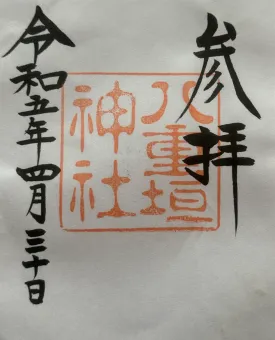 参拝
八重垣
神社
令和五年四月三十日